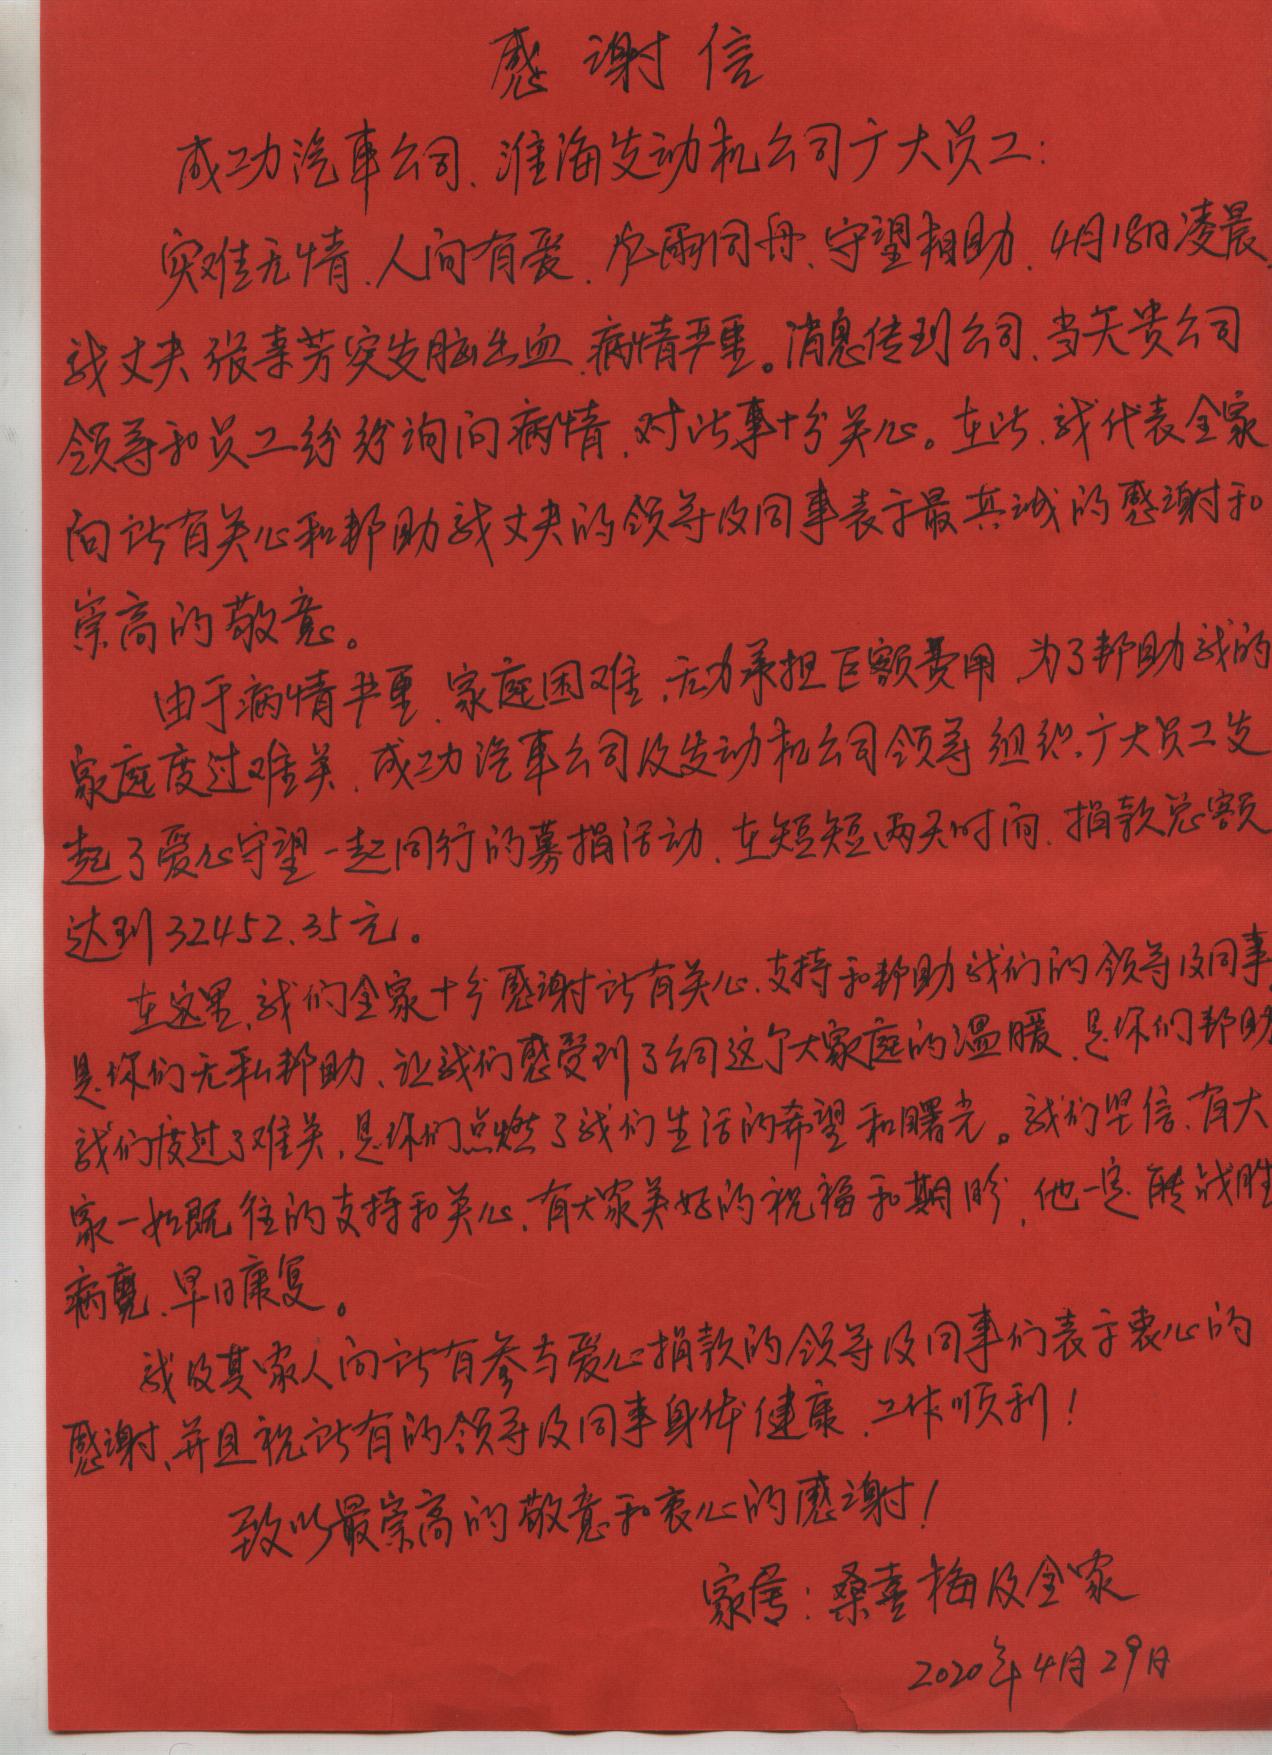 感谢信
成功汽车公司、淮海发动机公司广大员工：
灾难无情、人间有爱、风雨同舟、守望相助、4月18日凌晨，
我丈夫张素芳突发脑出血、病情严重。消息传到公司、当天贵公司
领导和员工纷纷询问病情，对此事十分关心。在此、我代表全家
向所有关心和帮助我丈夫的领导及同事表于最真诚的感谢和
崇高的敬意。
由于病情严重、家庭困难，无力承担巨额费用，为了帮助我的
家庭度过难关、成功汽车公司及发动机公司领导组织广大员工发
起了爱心守望一起同行的募捐活动、在短短两天时间、捐款总额
达到32452.35元。
在这里、我们全家十分感谢所有关心、支持和帮助我们的领导及同事，
是你们无私帮助、让我们感受到了公司这个大家庭的温暖、是你们帮助
我们度过了难关，是你们点燃了我们生活的希望和曙光。我们坚信、有大
家一如既往的支持和关心、有大家美好的祝福和期盼，他一定能战胜
病魔、早日康复。
我及其家人向所有参与爱心捐款的领导及同事们表于衷心的
感谢、并且祝所有的领导及同事身体健康、工作顺利！
致以最崇高的敬意和衷心的感谢！
家属：桑喜梅及全家
2020年4月29日